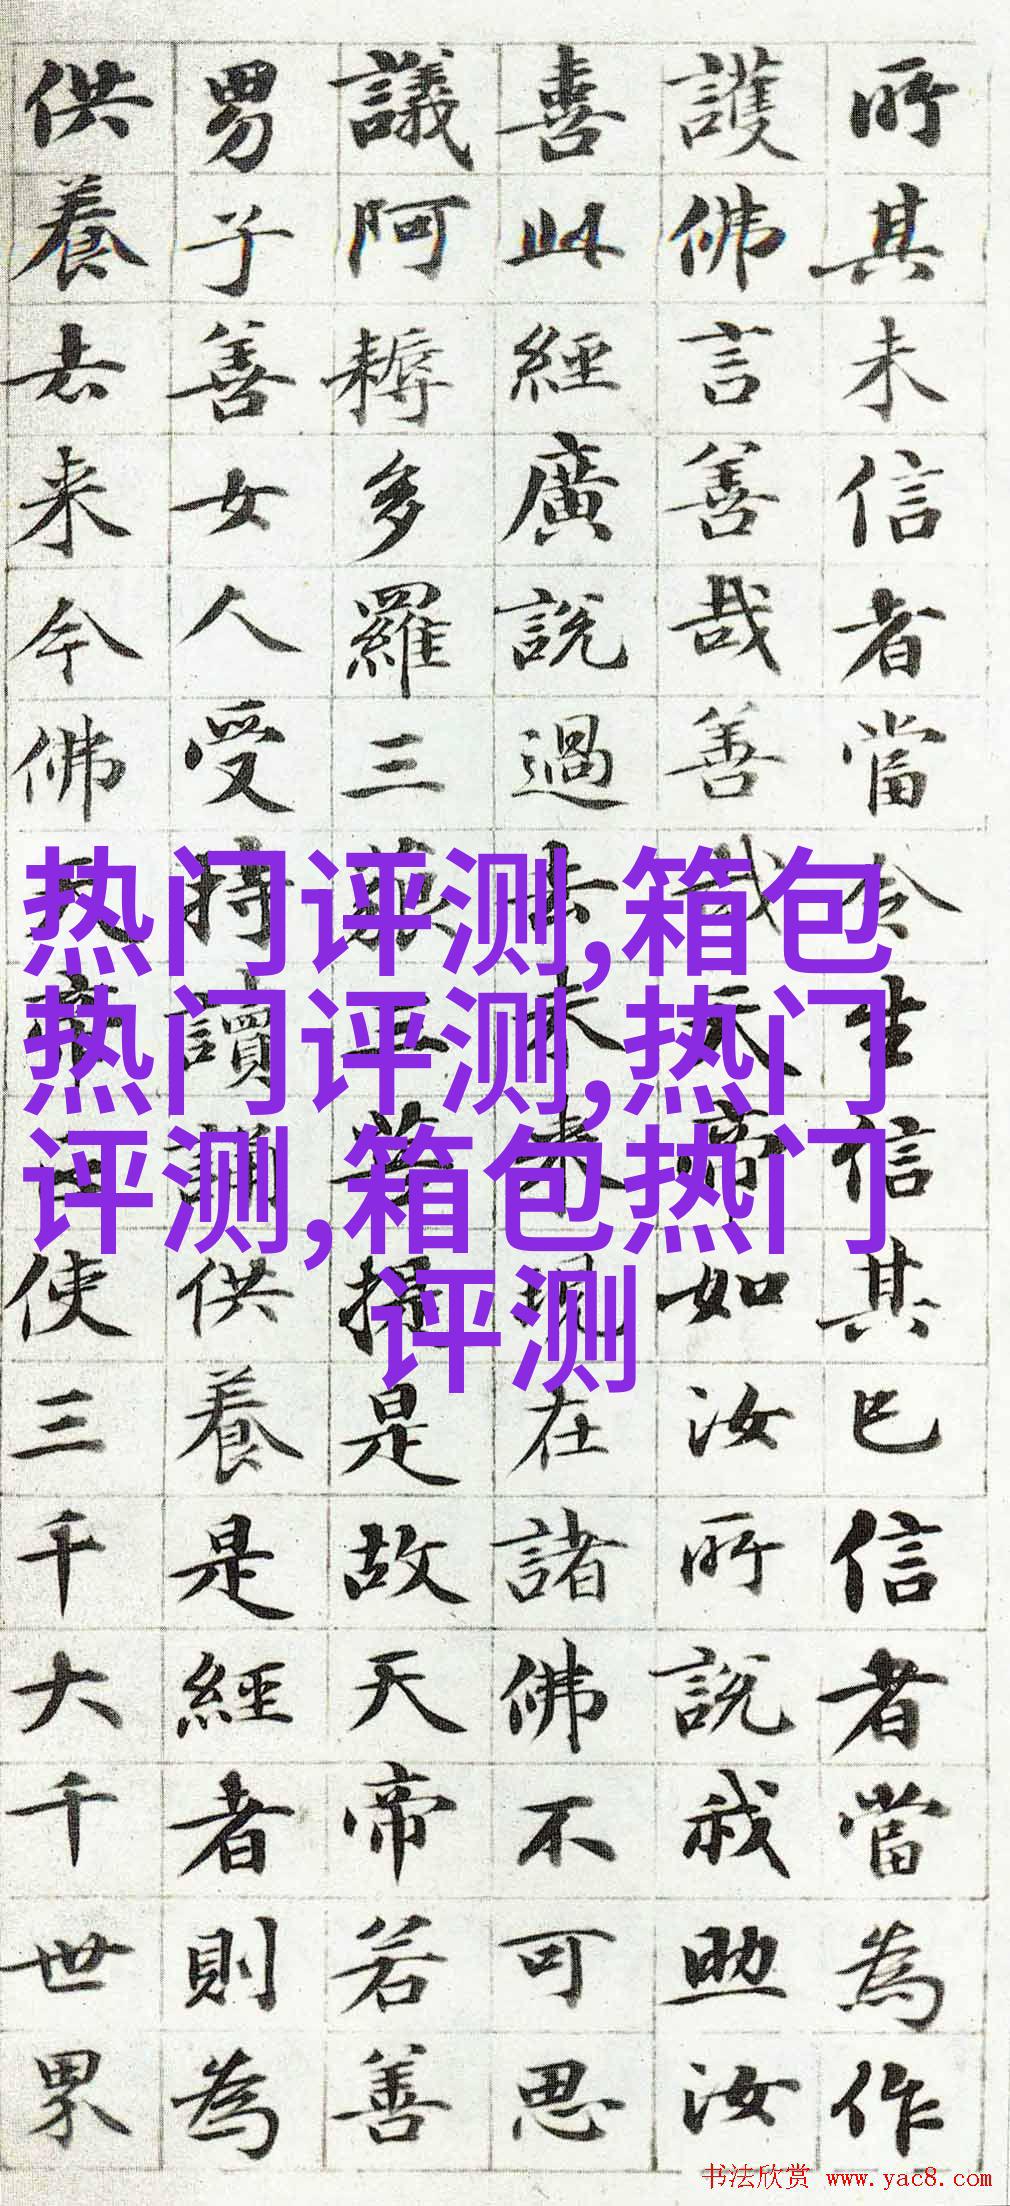 所其未信者當令生信其已信者當為作
護佛言善哉善哉天帝如汝所說我助汝
喜此經廣說過去未來現在諸佛不可思
議阿耨多羅三藐三菩提是故天帝若善
男子善女人受持讀誦供養是經者則為
供養去来今佛天帝正使三千大千世界
热门评测,箱包
热门评测,热门
评测,箱包热门
评测
书法欣赏 www.yac8.com